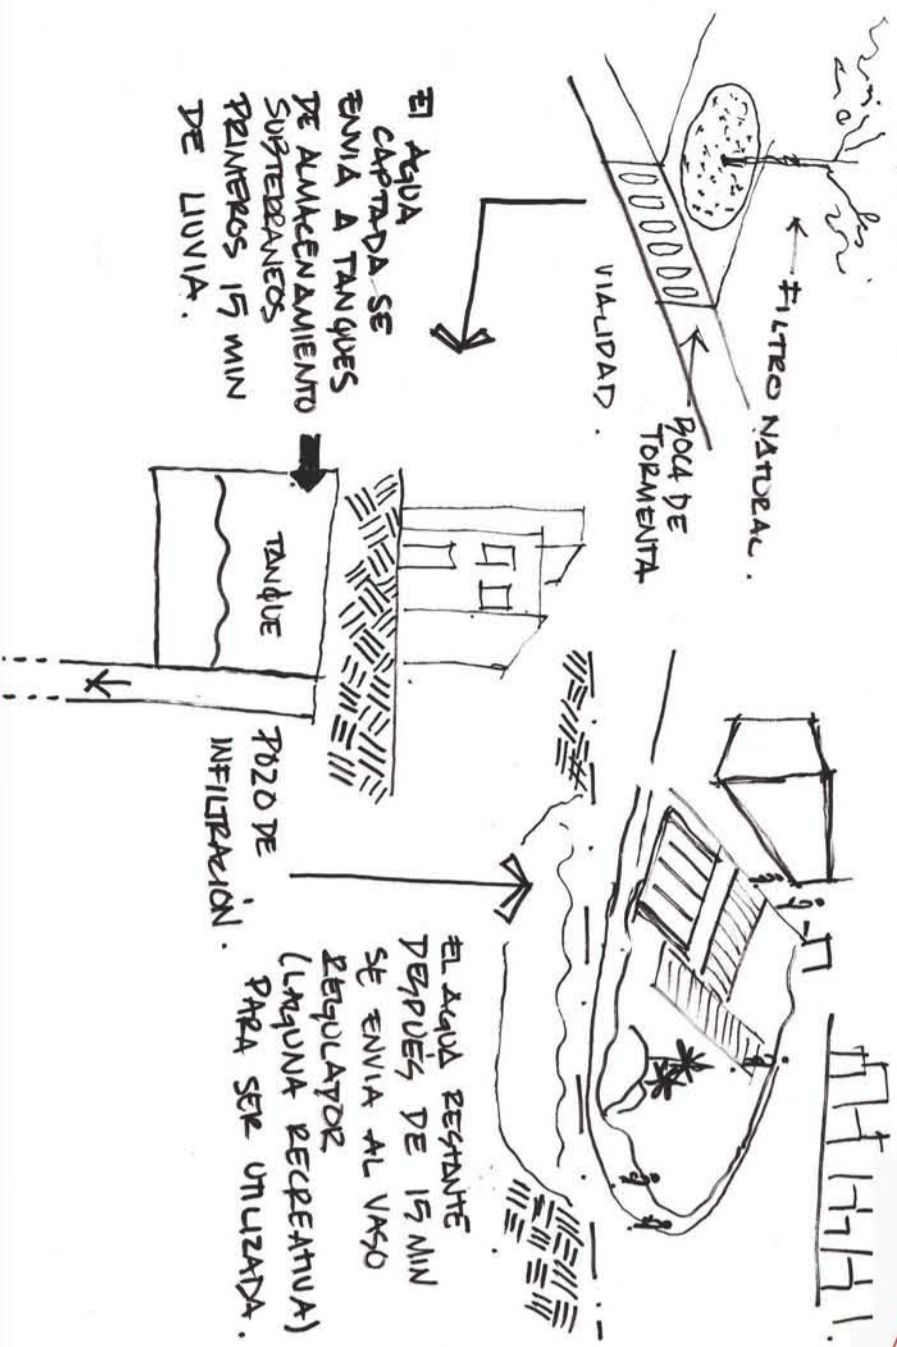 FILTRO NATURAL.
BOCA DE
TORMENTA
VIALIDAD.
El AGUA
CAPTADA SE
ENVIA A TANQUES
DE ALMACENAMIENTO
SUBTERRANEOS
PRIMEROS 15 MIN
DE LLUVIA.
TANQUE
POZO DE
INFILTRACIÓN.
EL AGUA RESTANTE
DESPUÉS DE 15 MIN
SE ENVIA AL VASO
REGULADOR
(LAGUNA RECREATIVA)
PARA SER UTILIZADA.